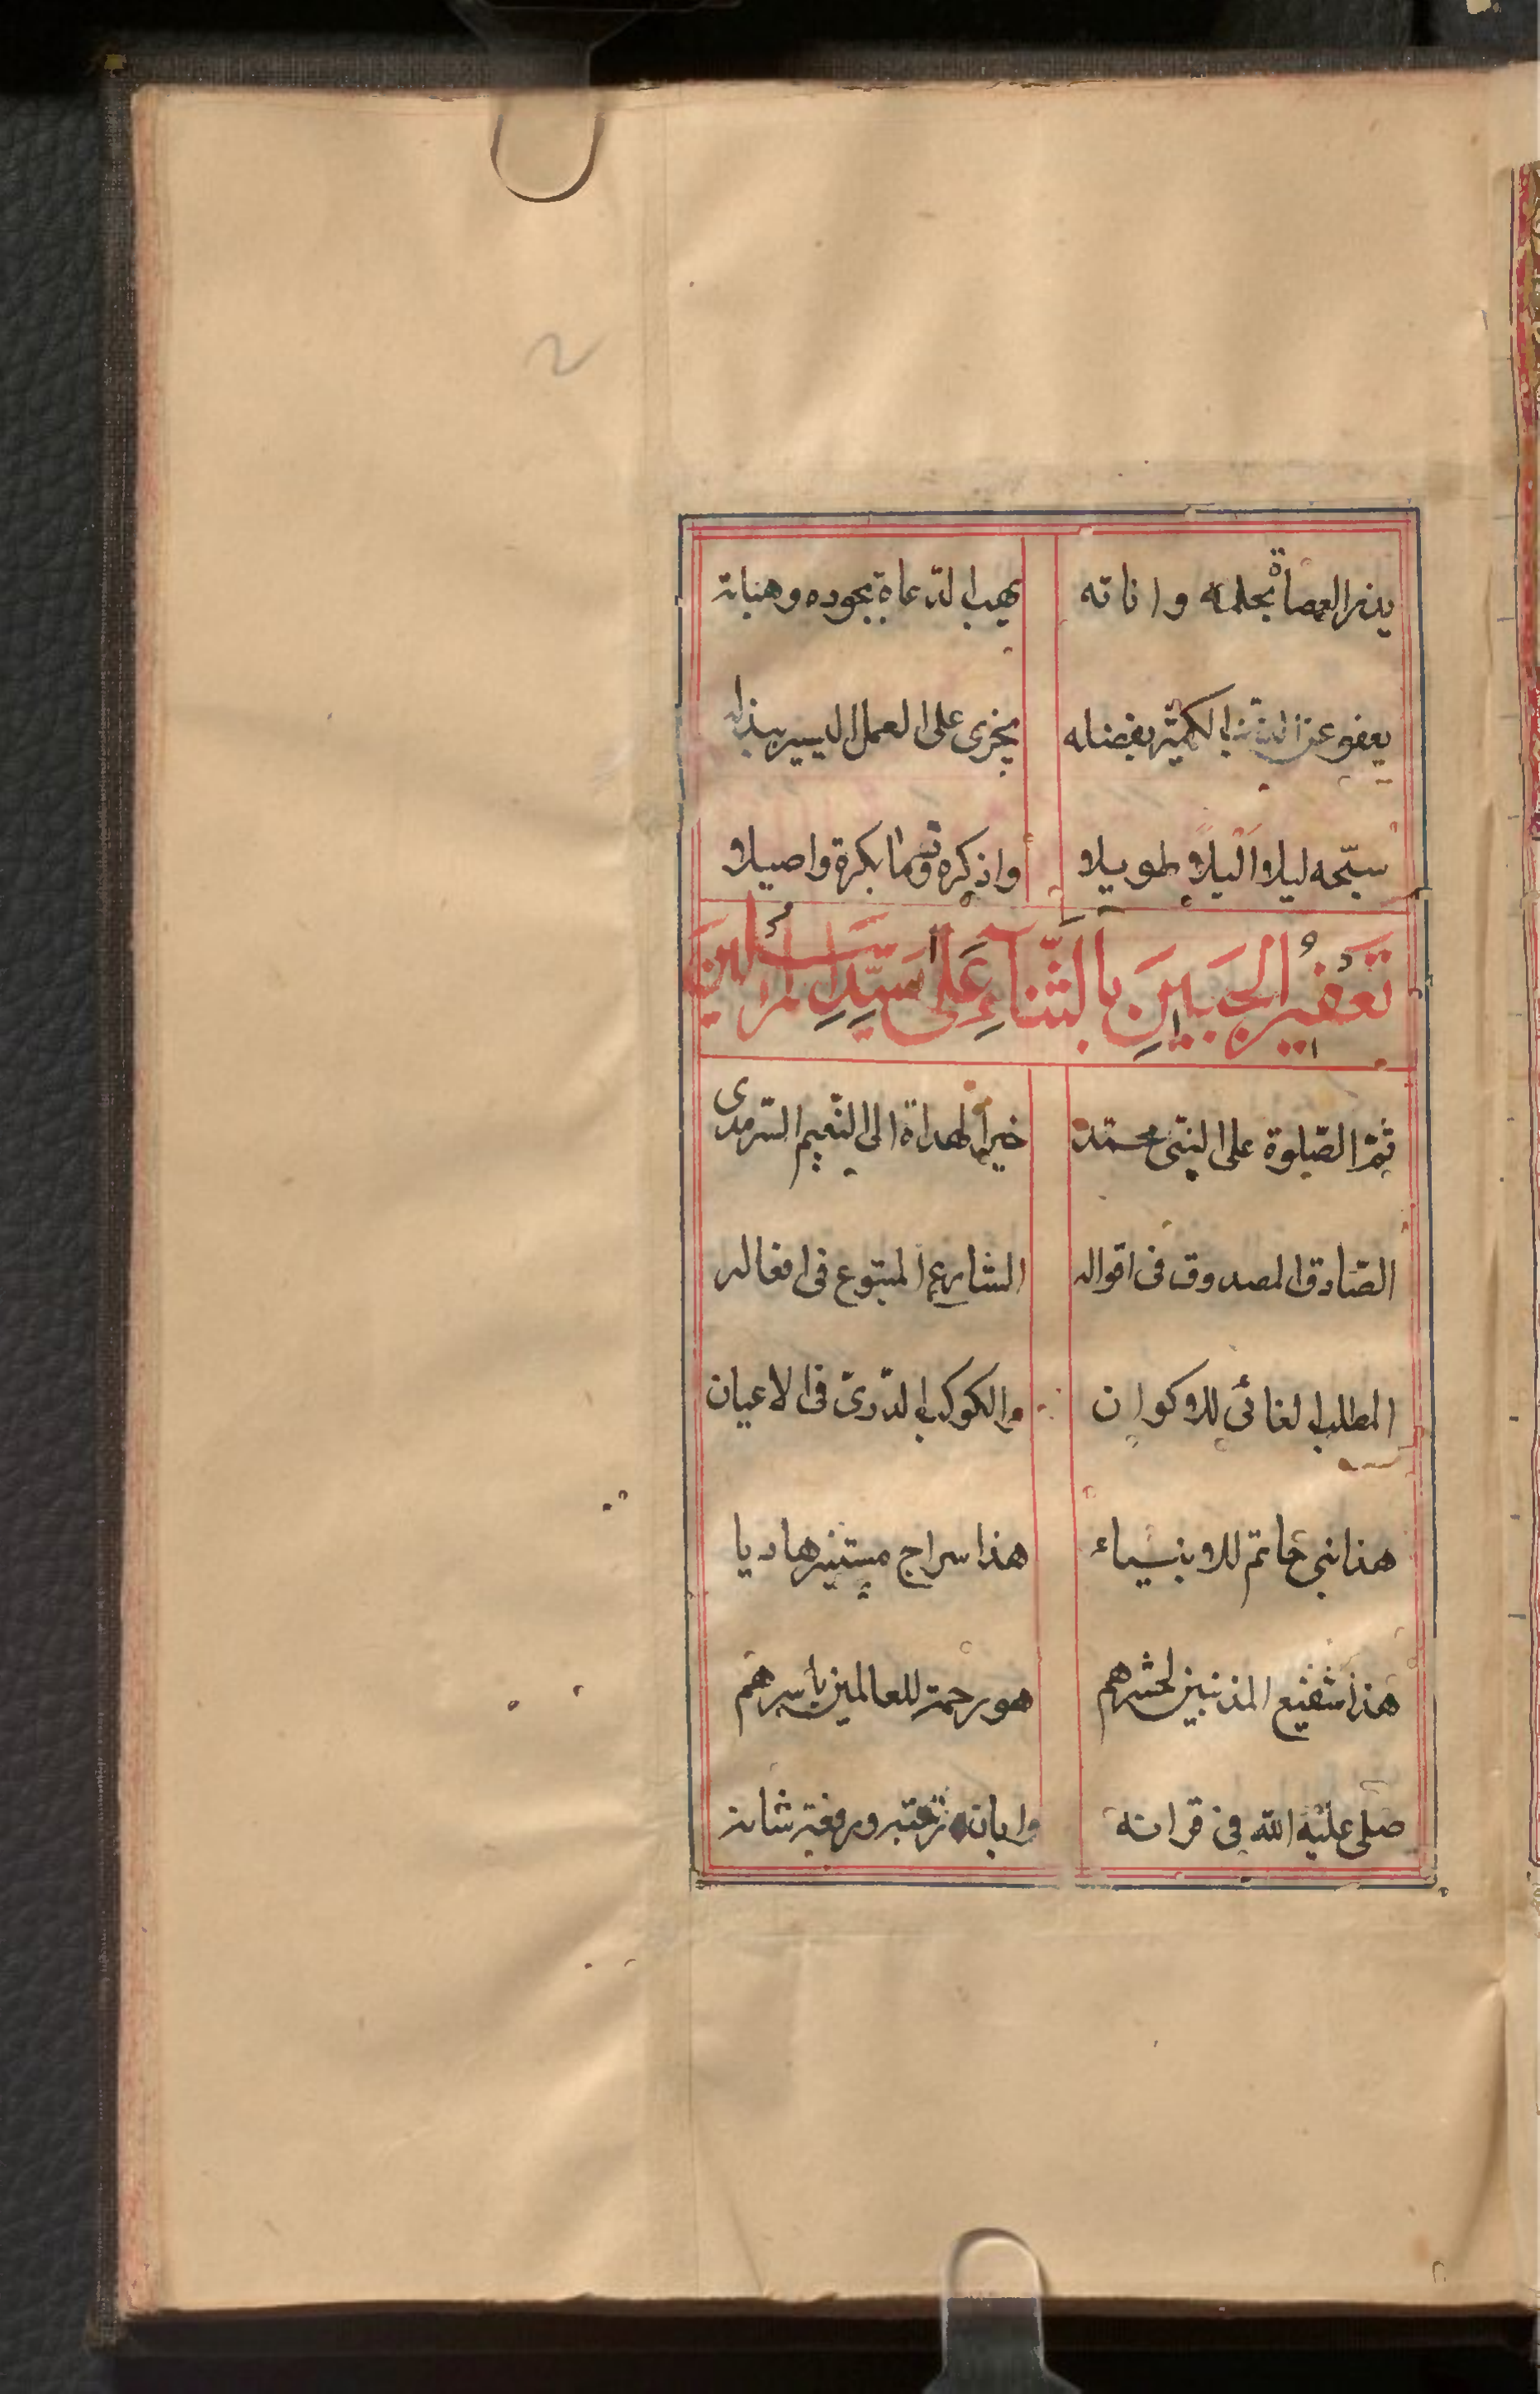 يذر العصاة بحلمه واناته يهب الدعاة بجوده وهباته
يعفو عن الذنب الكثير بفضله يجزى على العمل اليسير ببذله
سبّحه ليلا اليلا طويلا واذكره قوما بكرة واصيلا
تَعفيُر الجَبينِ بالثّناءِ عَلى سَيّدِ المُرسَلينَ
ثمّ الصّلوة على النبّى محمّد خير الهداة الى النّعيم السّرمدى
الصّادق المصدوق فى اقواله الشارع المتبوع فى افعاله
المطلب الغائى للاكوان والكوكب الدّرىّ فى الاعيان
هذا نبى خاتم للانبياء هذا سراج مستنير هاديا
هذا شفيع المذنبين لحشرهم هو رحمة للعالمين باسرهم
صلى عليه الله فى قرانه وابان رتبته ورفعة شانه
2